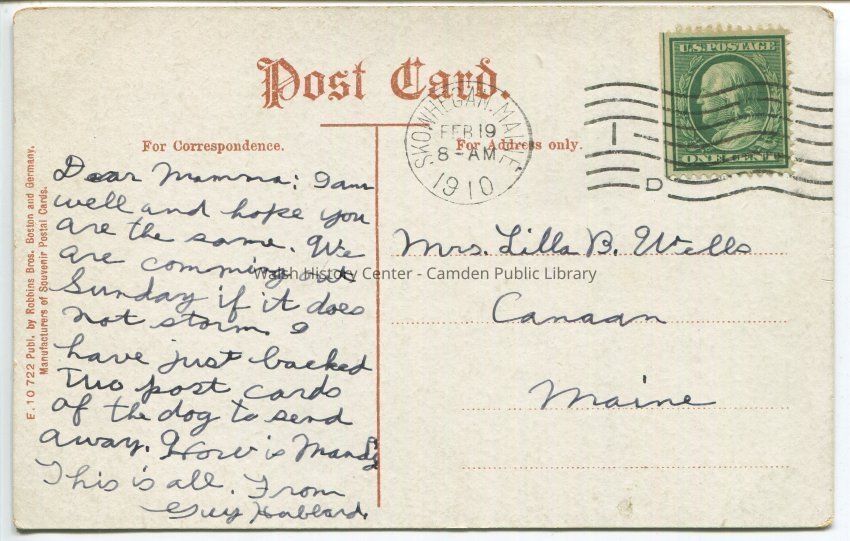 Post Card.
For Correspondence.
For Address only.
SKOWHEGAN, MAINE
FEB 19
8-AM
1910
D
U.S. POSTAGE
ONE CENT
E. 10 722 Publ. by Robbins Bros. Boston and Germany,
Manufacturers of Souvenir Postal Cards.
Dear Mamma: I am
well and hope you
are the same. We
are comming out
Sunday if it does
not storm. I
have just backed
two post cards
of the dog to send
away. How is Mandy
This is all. From
Guy Hubbard.
Mrs. Lilla B. Wells
Canaan
Maine
Walsh History Center - Camden Public Library